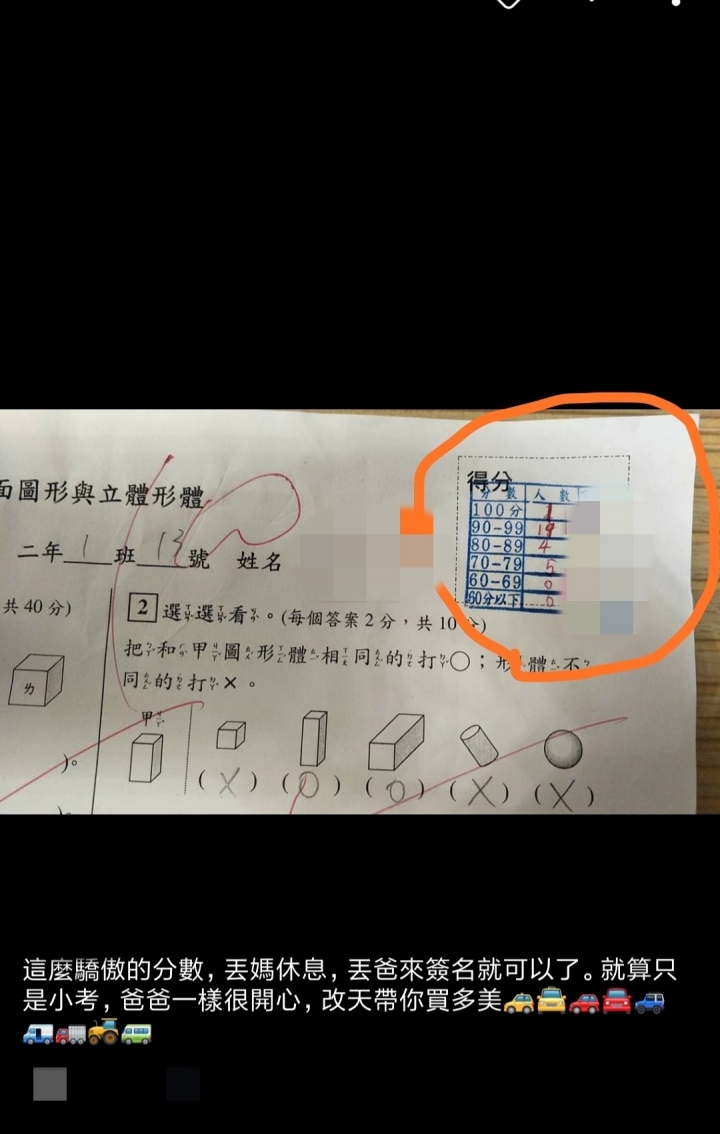 面圖形與立體形體
二年1班13號 姓名
得分
分數 人數
100分 1
90-99 19
80-89 4
70-79 5
60-69 0
60分以下 0
共 40 分)
ㄌ
)。
2 選選看。(每個答案2分,共10分)
把和甲圖形體相同的打○;形體不
同的打×。
甲
(X) (O) (O) (X) (X)
這麼驕傲的分數, 丟媽休息, 丟爸來簽名就可以了。就算只
是小考, 爸爸一樣很開心, 改天帶你買多美🚕🚖🚗🚘🚙
🚐🚛🚜🚐